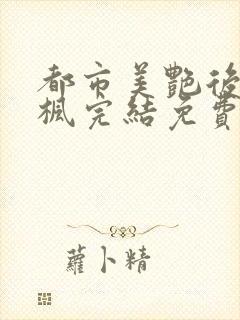 都市美艷後
楓完結免費
蘿卜精